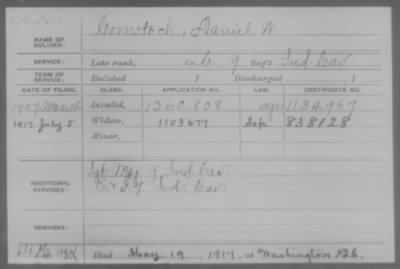 DEAD
NAME OF SOLDIER: Comstock, Daniel W.
SERVICE: Late rank, Co. C, 9 Reg't Ind. Cav.
TERM OF SERVICE: Enlisted , 1 Discharged , 1
DATE OF FILING. CLASS. APPLICATION NO. LAW. CERTIFICATE NO.
1907 Invalid, 1360.808 age 1134.967
1917 July 5 Widow, 1103677 Sep 838128
Minor,
ADDITIONAL SERVICES: Sgt Maj 9 Ind Cav.
Ind. Cav.
REMARKS:
Died May 19, 1917, at Washington